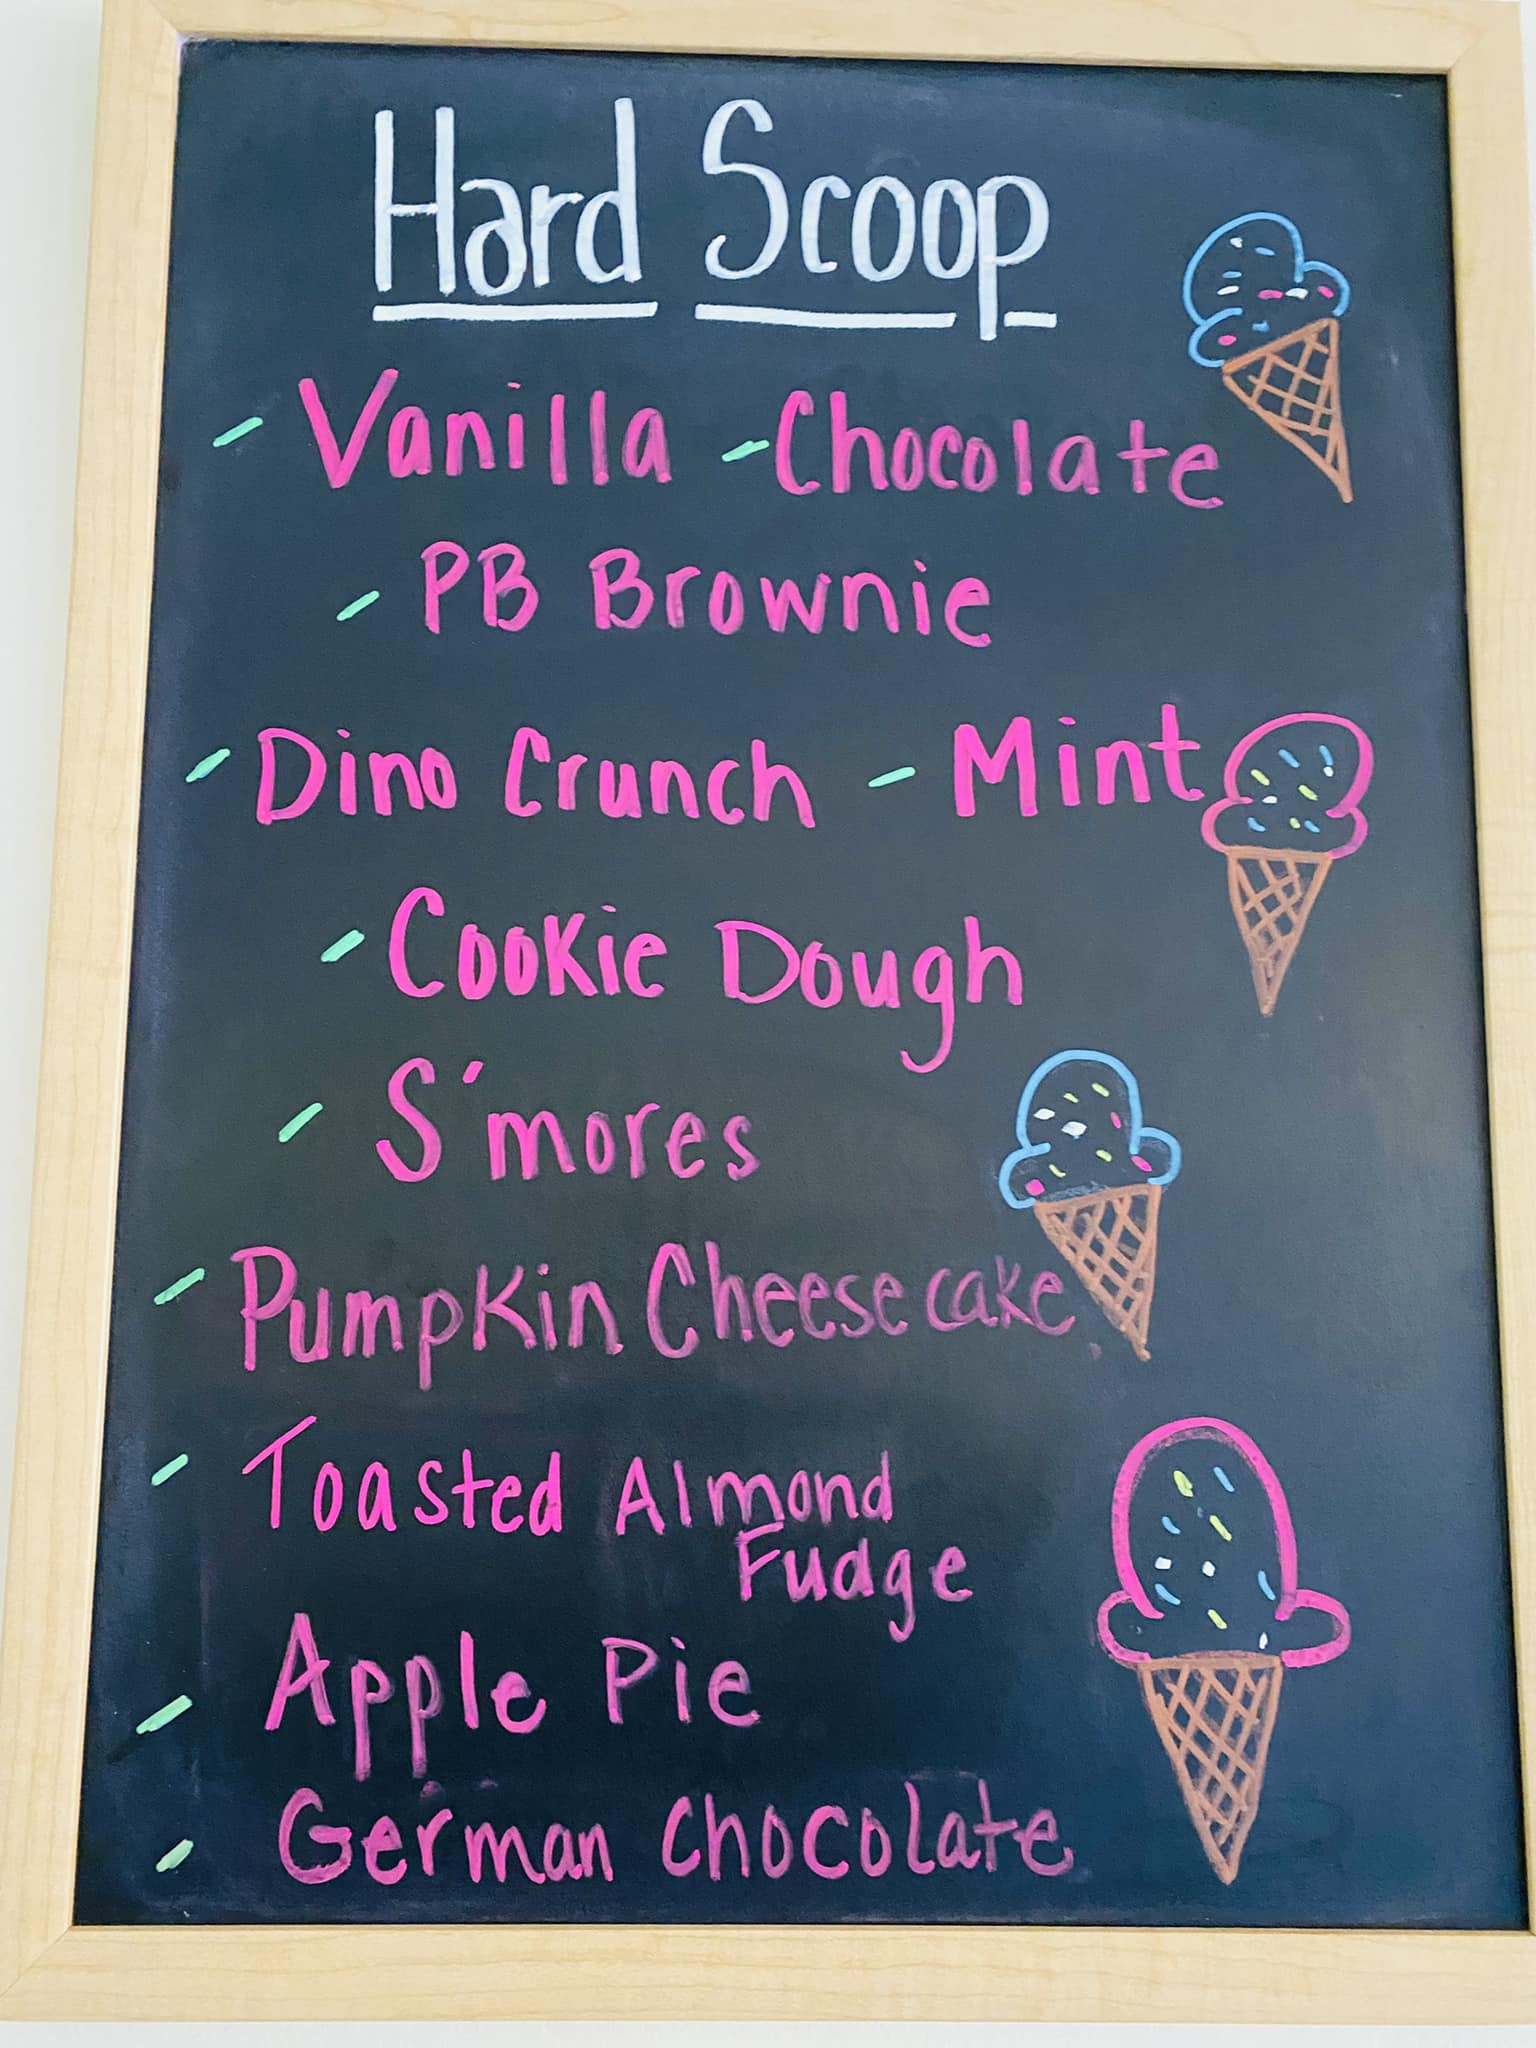 Hard Scoop
- Vanilla - Chocolate
- PB Brownie
- Dino Crunch - Mint
- Cookie Dough
- S'mores
- Pumpkin Cheesecake
- Toasted Almond
Fudge
- Apple Pie
- German Chocolate